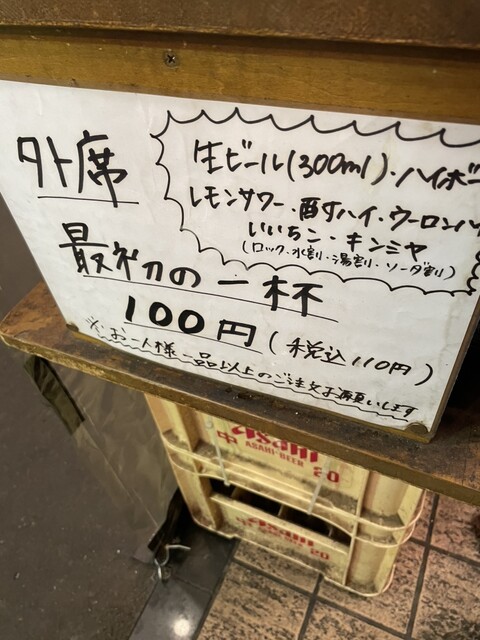 外席
生ビール(300ml)・ハイボー
レモンサワー・酎ハイ・ウーロンハ
いいちこ・キンミヤ
(ロック・水割・湯割・ソーダ割)
最初の一杯
100円(税込110円)
※お一人様一品以上のご注文お願いします
Asahi
ASAHI BEER 20
Asahi
20